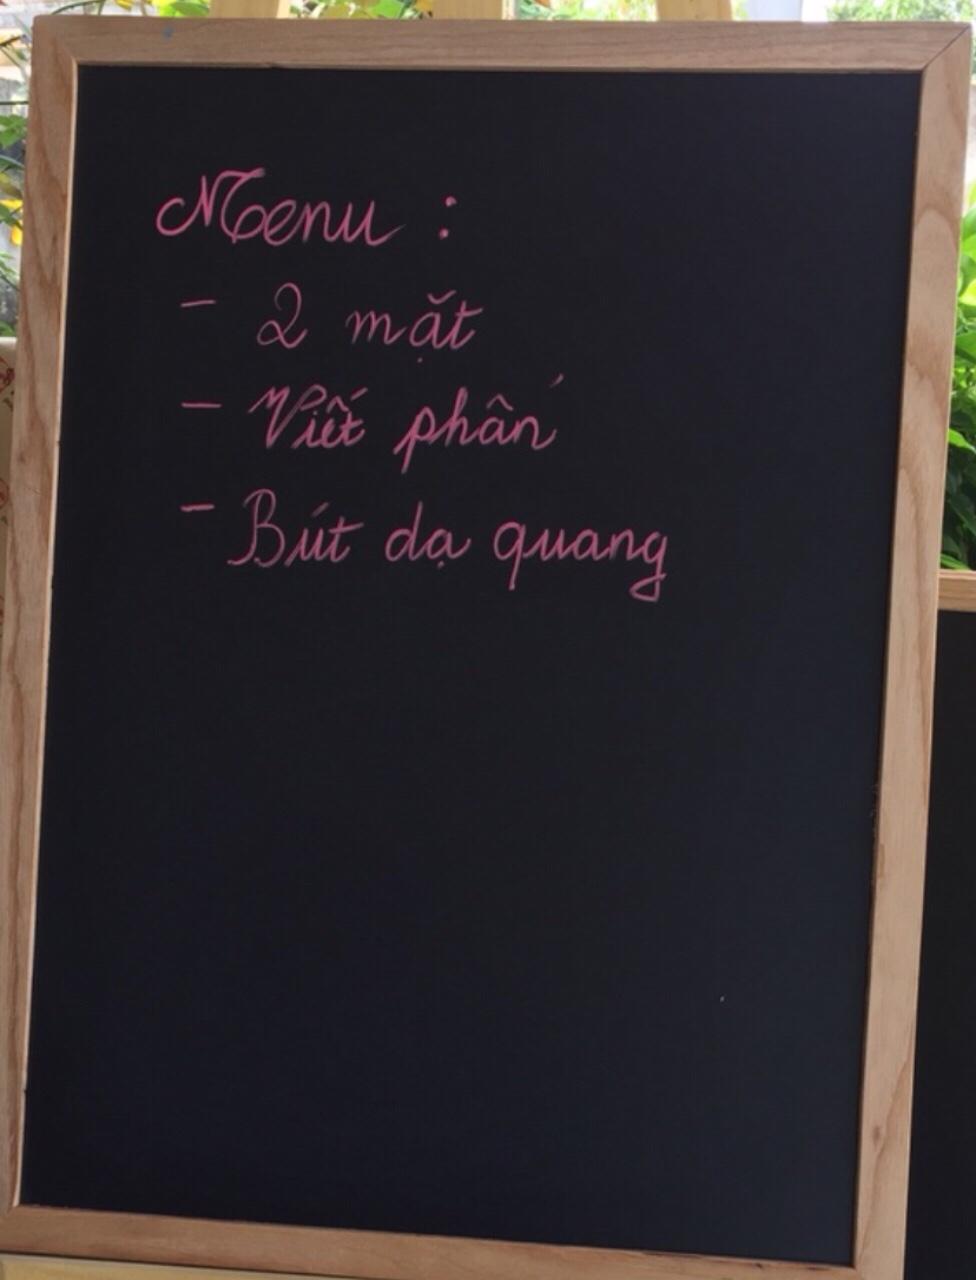 Menu :
- 2 mặt
- Viết phấn
- Bút dạ quang